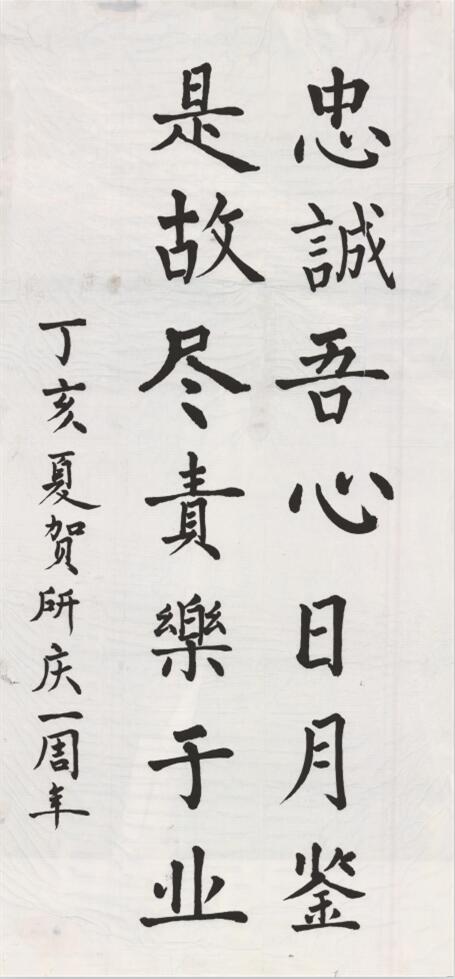 忠誠吾心日月鉴
是故尽責樂于业
丁亥夏贺研庆一周年